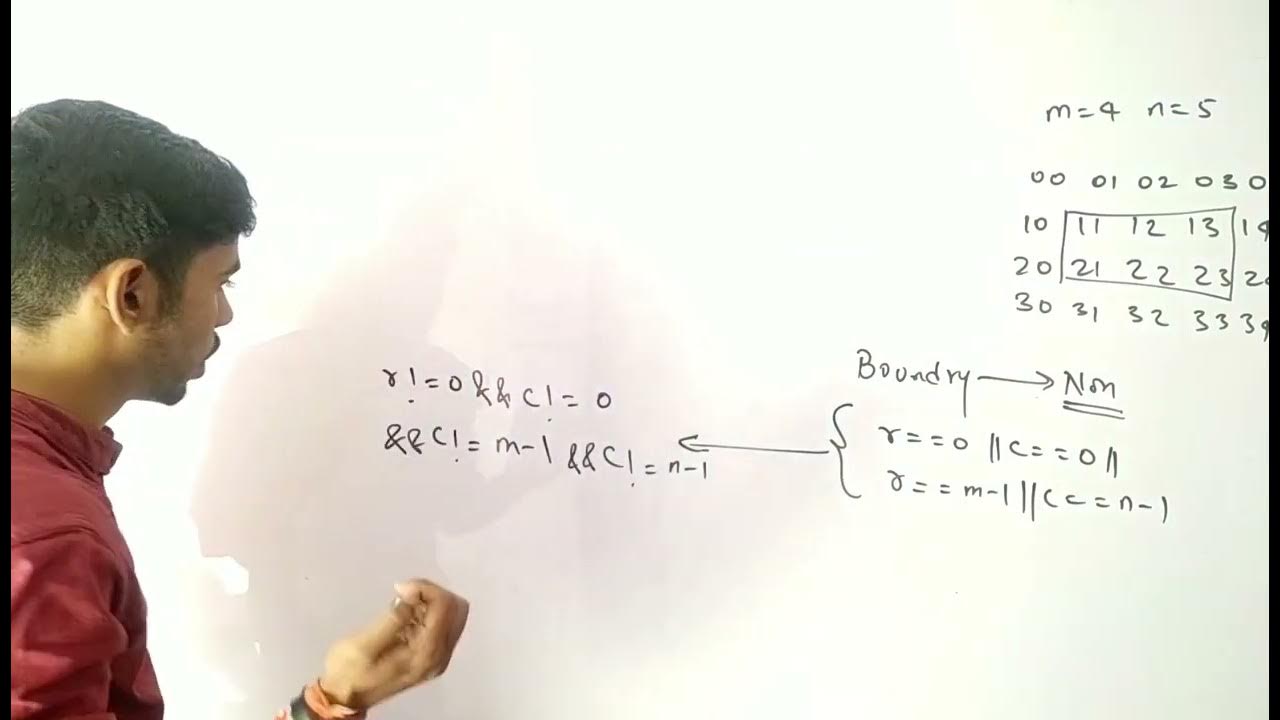 m=4 n=5
00 01 02 03 0
10 11 12 13 1
20 21 22 23 2
30 31 32 33 3
Boundry → Non
r==0 ||c==0||
r==m-1||c==n-1
r!=0&&c!=0
&&c!=m-1&&c!=n-1